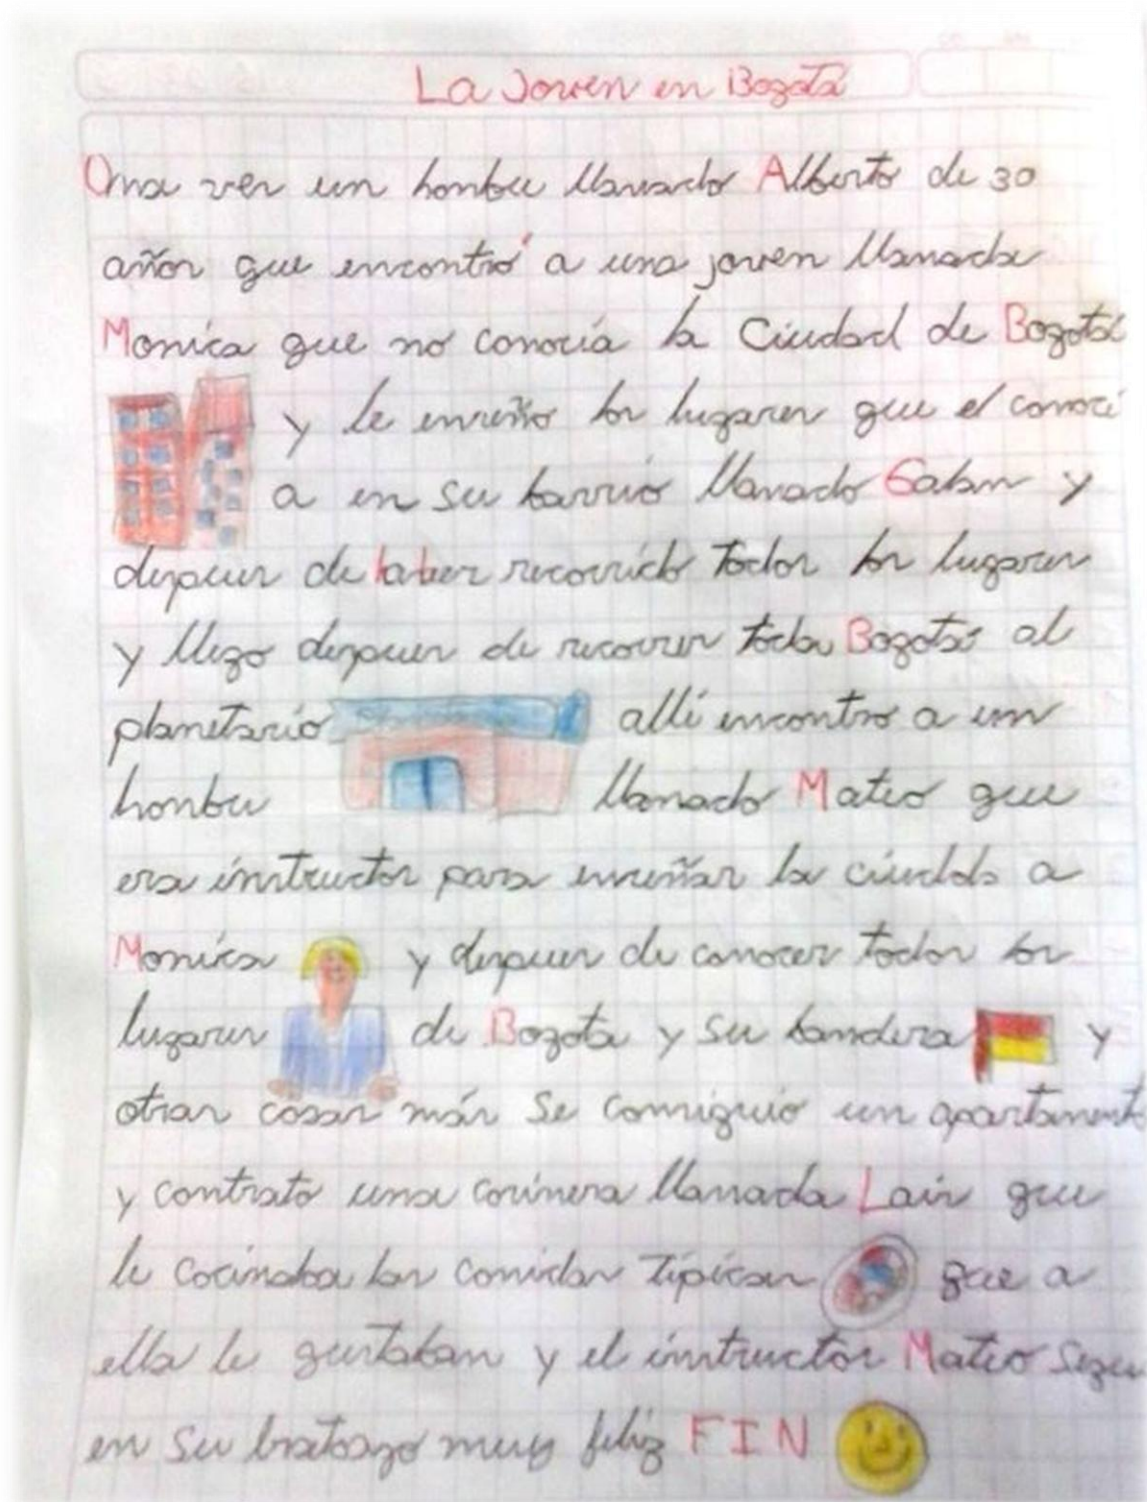 La Joven en Bogotá
Una vez un hombre llamado Alberto de 30
años que encontró a una joven llamada
Monica que no conocía la Ciudad de Bogotá
y le enseño los lugares que el conocí
a en su barrio llamado Galan y
despues de haber recorrido todos los lugares
y llego despues de recorrer toda Bogotá al
planetario allí encontro a un
hombre llamado Mateo que
era instructor para enseñar la ciudad a
Monica y despues de conocer todos los
lugares de Bogota y su bandera y
otras cosas más se consiguio un apartamento
y contrato una cosinera llamada Lais que
le cocinaba las comidas típicas que a
ella le gustaban y el instructor Mateo
en su muy feliz FIN